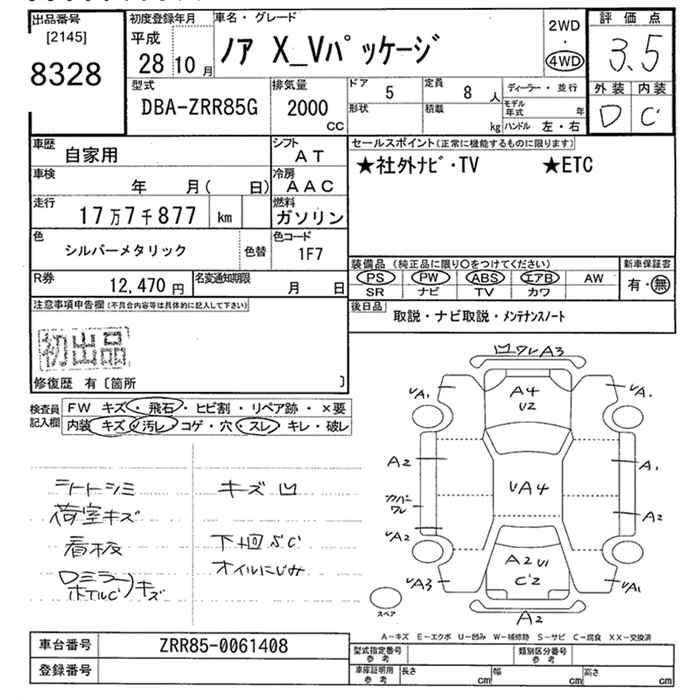 出品番号
[2145]
8328
初度登録年月
平成
28 10 月
車名・グレード
ノア X_Vパッケージ
2WD
・
4WD
評価点
3.5
外装 内装
D C
型式
DBA-ZRR85G
排気量
2000
CC
ドア 5
定員 8 人
形状
積載 kg
ディーラー・並行
モデル年式 年
ハンドル 左・右
車歴 自家用
シフト AT
車検 年 月( 日)
冷房 AAC
走行 17万7千877 km
燃料 ガソリン
色 シルバーメタリック 色替
色コード 1F7
R券 12,470 円
名変通知期限 月 日
セールスポイント(正常に機能するものに限ります)
★社外ナビ・TV ★ETC
装備品 (純正品に限り○をつけてください)
PS PW ABS エアB AW
SR ナビ TV カワ
新車保証書
有・無
後日品
取説・ナビ取説・メンテナンスノート
注意事項申告欄(不具合内容等は具体的に記入して下さい)
初出品
修復歴 有〔箇所 〕
検査員記入欄
FW キズ・飛石・ヒビ割・リペア跡・×要
内装 キズ・汚レ・コゲ・穴・スレ・キレ・破レ
シートシミ
荷室キズ
看板
ロミラーキズ
ホイルC
キズ凹
下廻りC
オイルにじみ
凹ワレA3
A4
U2
UA1
UA1
A2
A1
UA4
カバーワレ
A2
UA2
A2 U1
C2
UA3
UA1
スペア
A2
A-キズ E-エクボ U-凹み W-補修跡 S-サビ C-腐食 XX-交換済
車台番号 ZRR85-0061408
登録番号
型式指定番号 参考
類別区分番号 参考
車庫証明用 参考
長さ cm
幅 cm
高さ cm